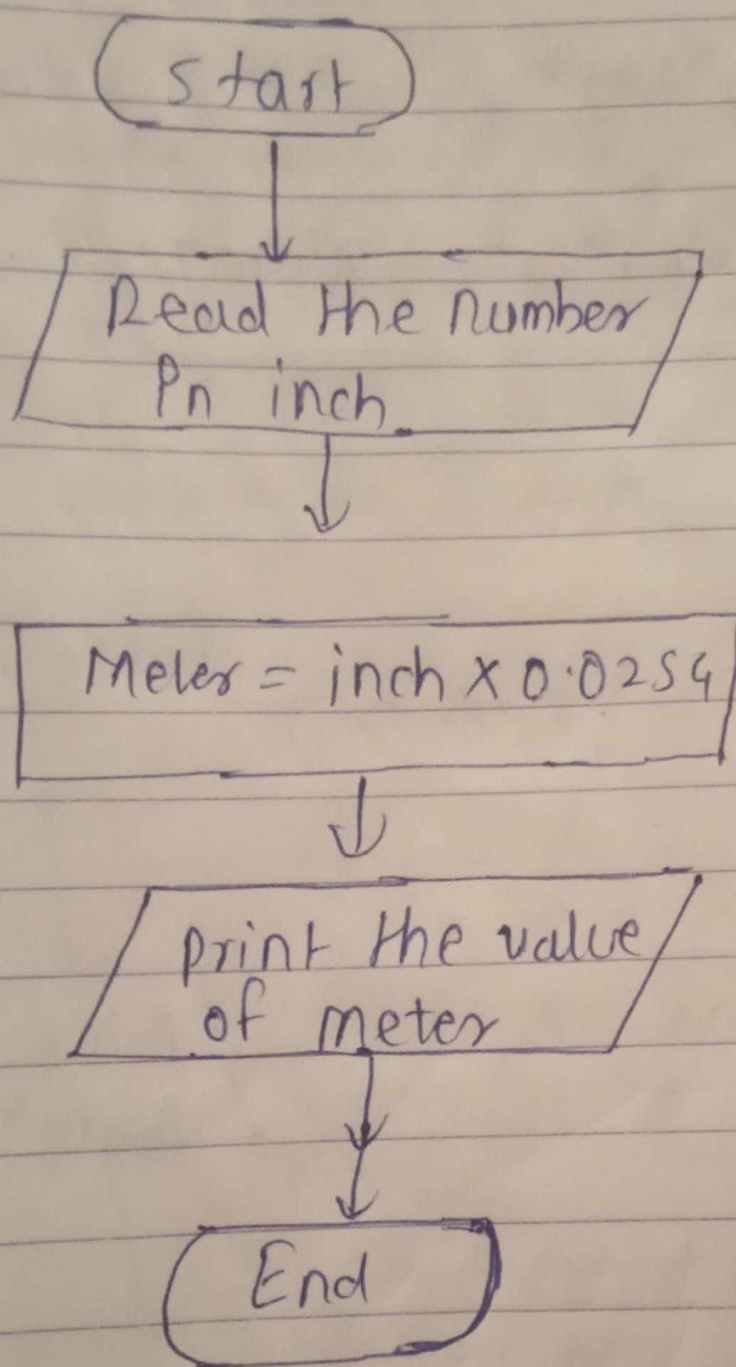 Start
Read the number
Pn inch
Meter = inch x 0.0254
print the value
of meter
End